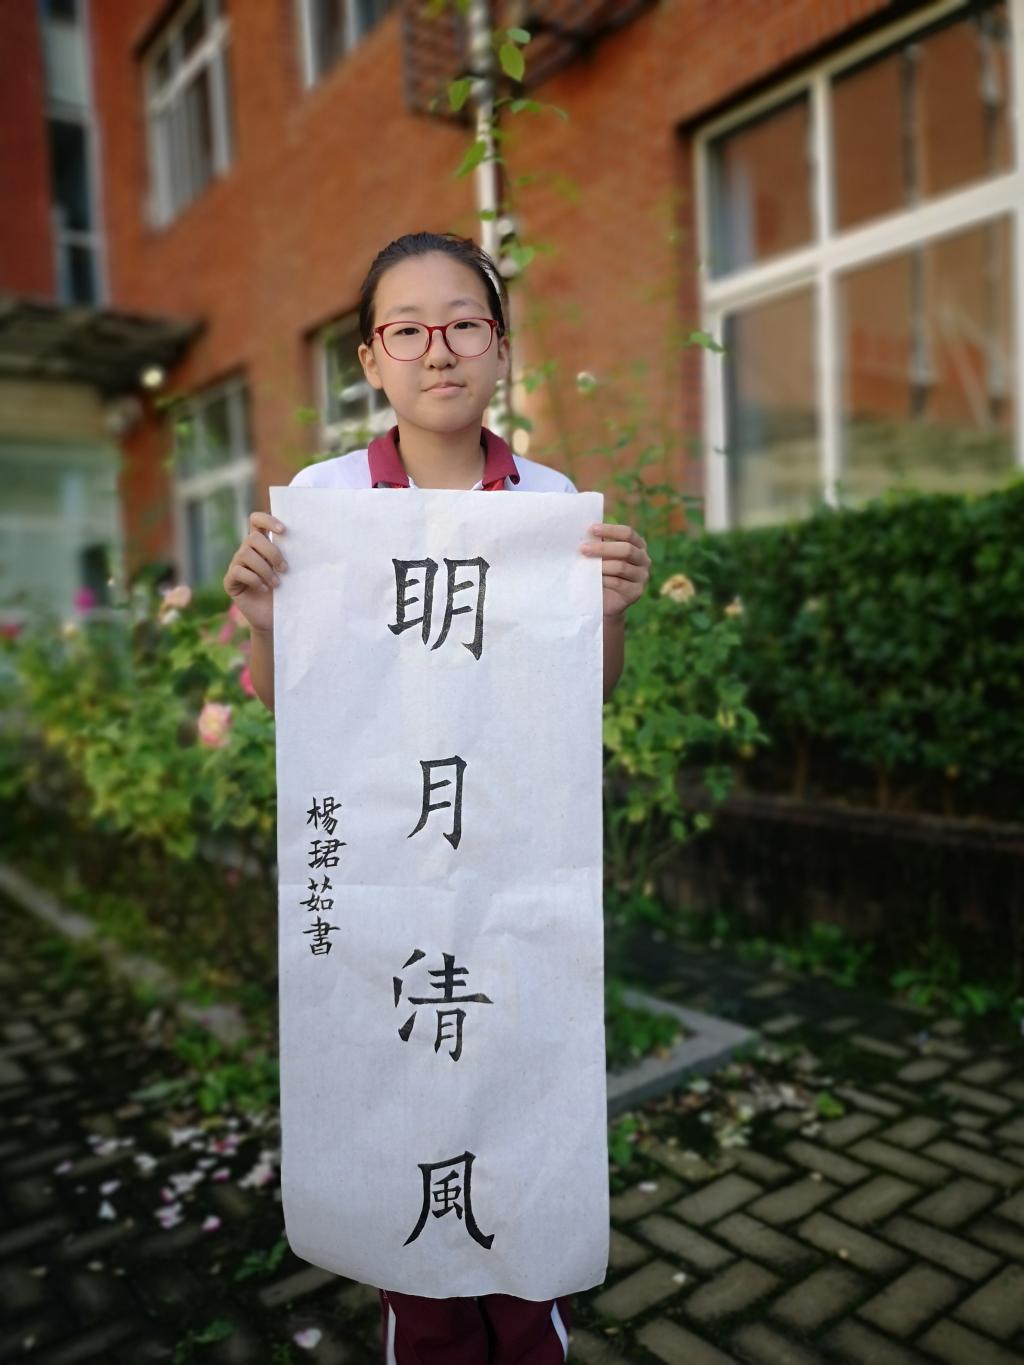 明月清風
楊珺茹書